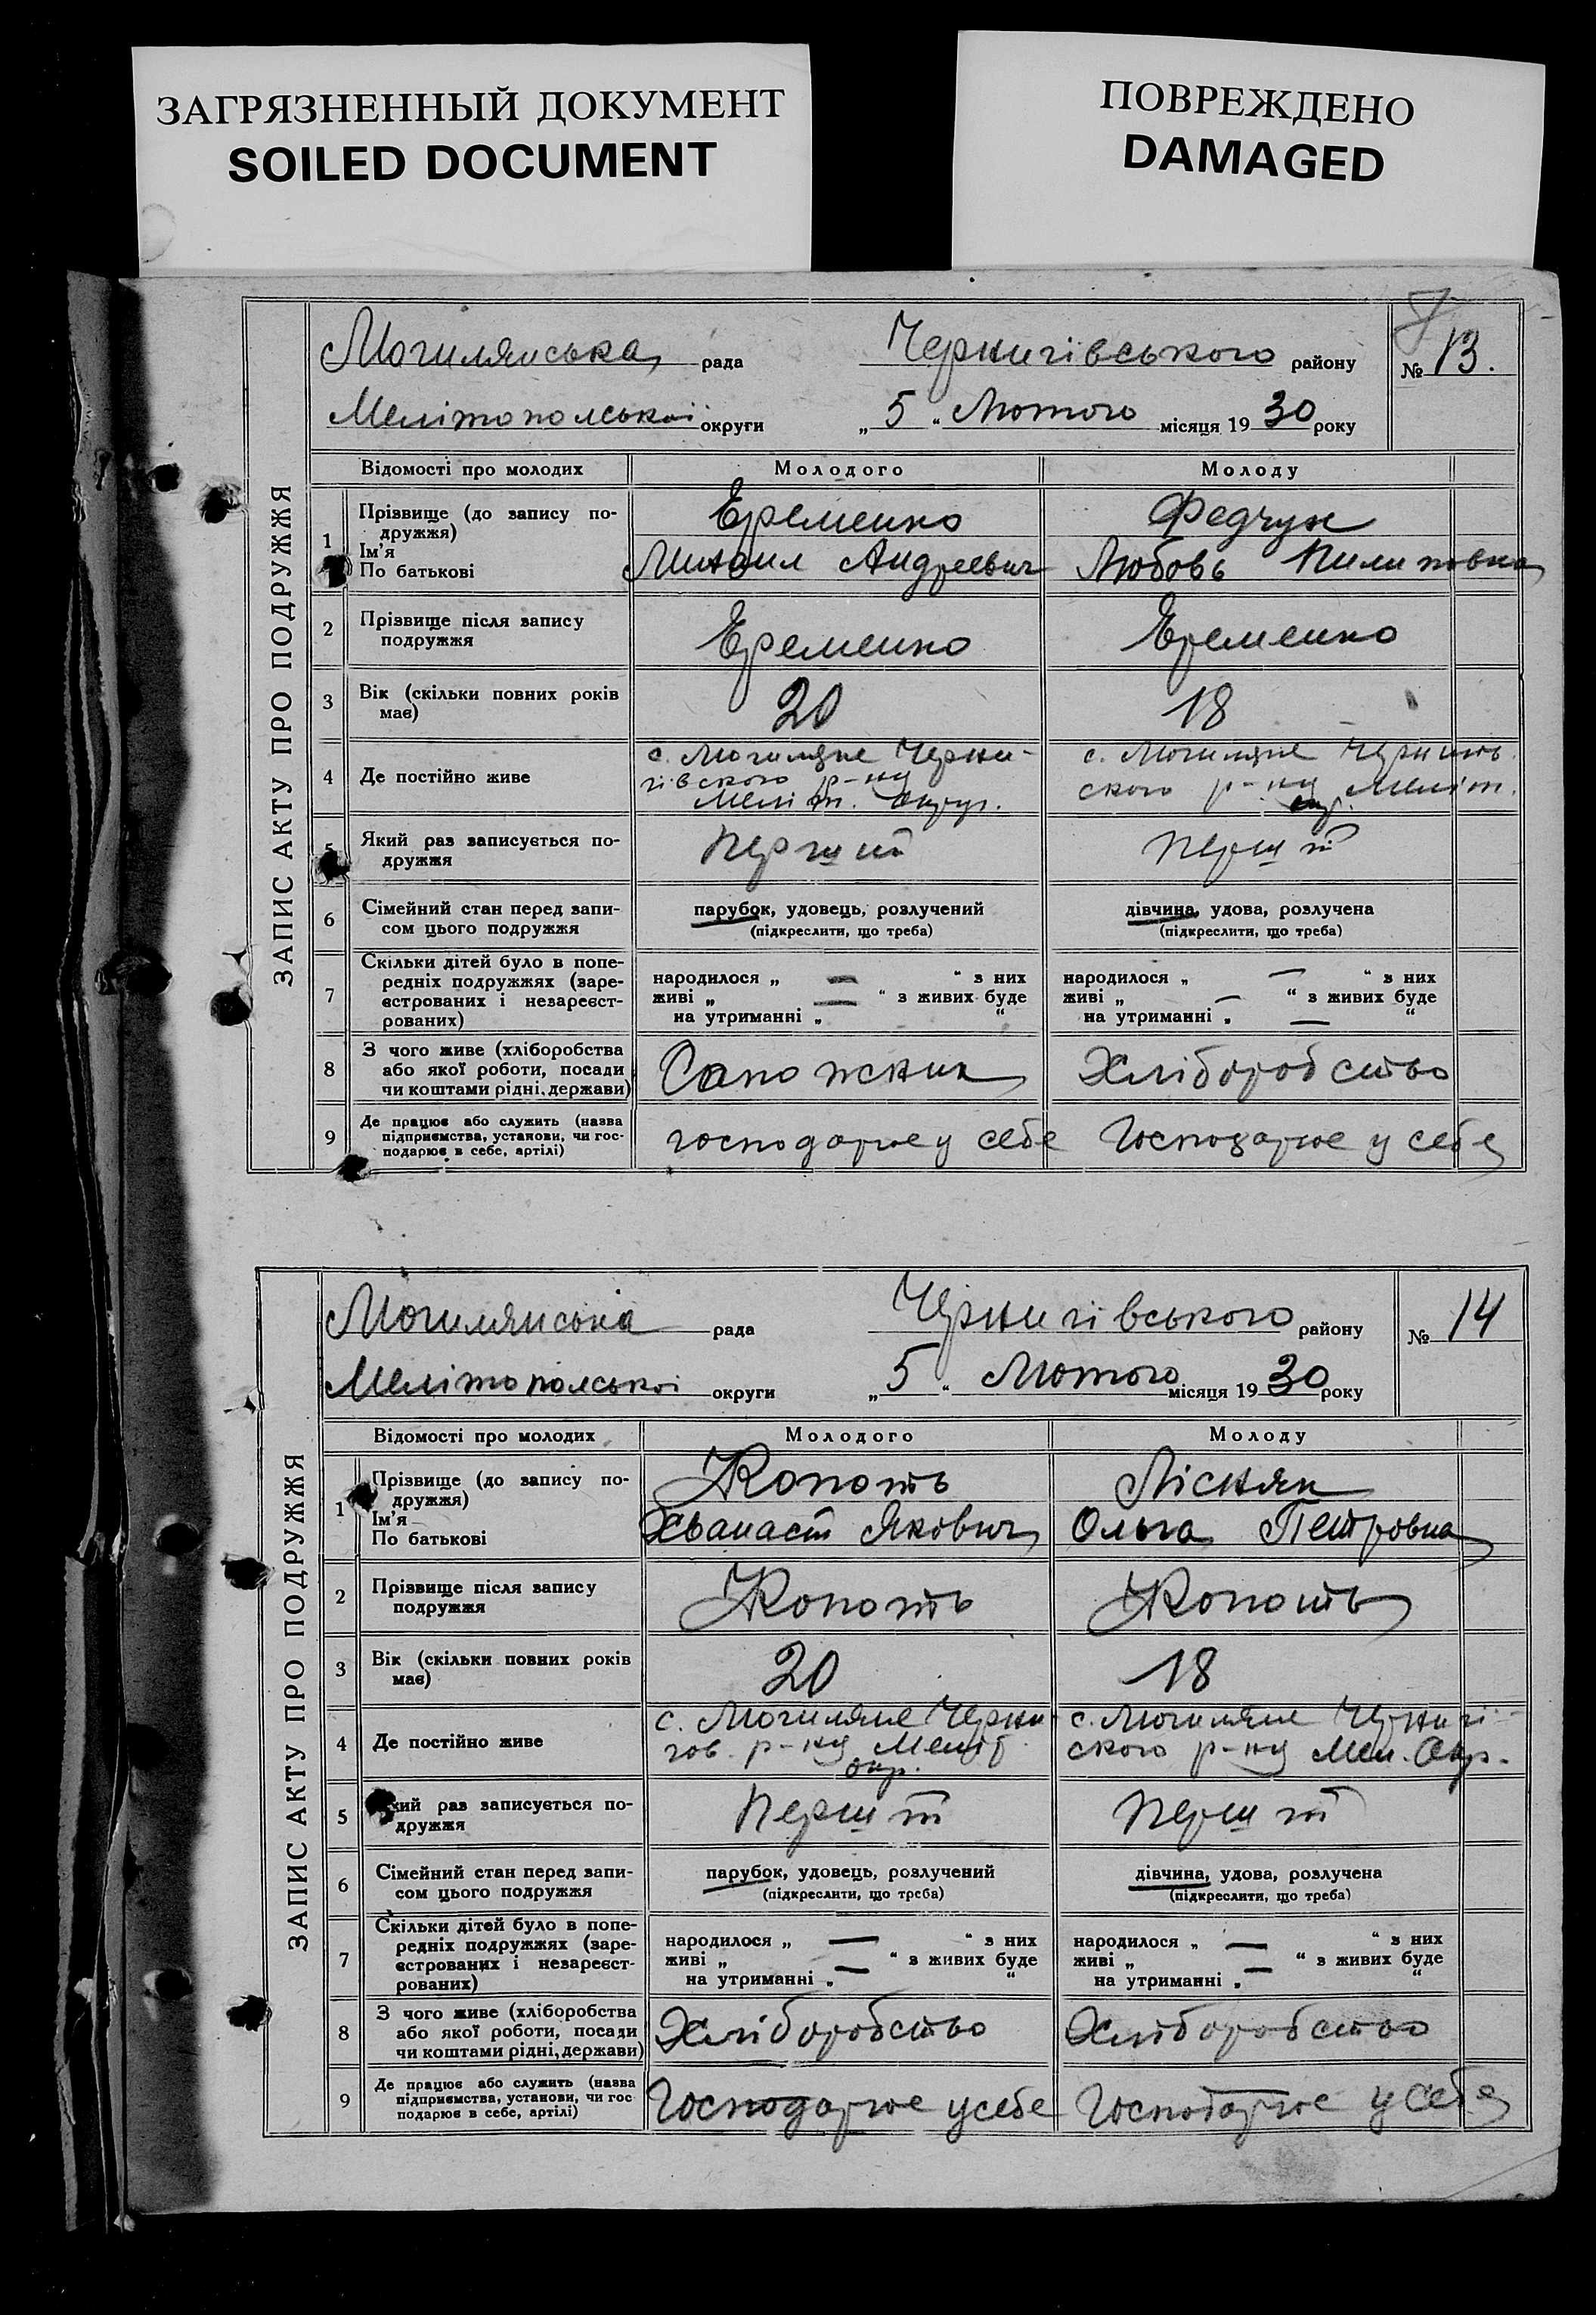 ЗАГРЯЗНЕННЫЙ ДОКУМЕНТ
SOILED DOCUMENT
ПОВРЕЖДЕНО
DAMAGED
ЗАПИС АКТУ ПРО ПОДРУЖЖЯ
Могилянська рада Чернигівського району № 13.
Мелітопольскоі округи „ 5 “ Лютого місяця 19 30 року
Відомості про молодих Молодого Молоду
1 Прізвище (до запису по- Еременко Федчун
дружжя)
Ім'я Михаил Андреевич Любовь Пилиповна
По батькові
2 Прізвище після запису Еременко Еременко
подружжя
3 Вік (скільки повних років 20 18
має)
4 Де постійно живе с. Могиляне Черни- с. Могиляне Чернигів
гівского р-ну ского р-ну Меліт.
Меліт. округ. окр.
5 Який раз записується по- перший перший
дружжя
6 Сімейний стан перед запи- парубок, удовець, розлучений дівчина, удова, розлучена
сом цього подружжя (підкреслити, що треба) (підкреслити, що треба)
7 Скільки дітей було в попе-
редніх подружжях (заре- народилося „ — “ з них народилося „ — “ з них
єстрованих і незареєст- живі „ — “ з живих буде живі „ — “ з живих буде
рованих) на утриманні „ “ на утриманні „ — “
8 З чого живе (хліборобства Сапожник Хліборобство
або якої роботи, посади
чи коштами рідні, держави)
9 Де працює або служить (назва господарює у себе Господарює у себе
підприємства, установи, чи гос-
подарює в себе, артілі)
ЗАПИС АКТУ ПРО ПОДРУЖЖЯ
Могилянська рада Чернигівського району № 14
Мелітопольскоі округи „ 5 “ Лютого місяця 19 30 року
Відомості про молодих Молодого Молоду
1 Прізвище (до запису по- Копоть Лісняк
дружжя)
Ім'я Хванаст Якович Ольга Петровна
По батькові
2 Прізвище після запису Копоть Копоть
подружжя
3 Вік (скільки повних років 20 18
має)
4 Де постійно живе с. Могиляне Черни- с. Могиляне Чернигі-
гов. р-ну Меліт. ского р-ну Мел. Окр.
окр.
5 Який раз записується по- перший перший
дружжя
6 Сімейний стан перед запи- парубок, удовець, розлучений дівчина, удова, розлучена
сом цього подружжя (підкреслити, що треба) (підкреслити, що треба)
7 Скільки дітей було в попе-
редніх подружжях (заре- народилося „ — “ з них народилося „ — “ з них
єстрованих і незареєст- живі „ — “ з живих буде живі „ — “ з живих буде
рованих) на утриманні „ “ на утриманні „ “
8 З чого живе (хліборобства Хліборобство Хліборобство
або якої роботи, посади
чи коштами рідні, держави)
9 Де працює або служить (назва Господарює у себе Господарює у себе
підприємства, установи, чи гос-
подарює в себе, артілі)